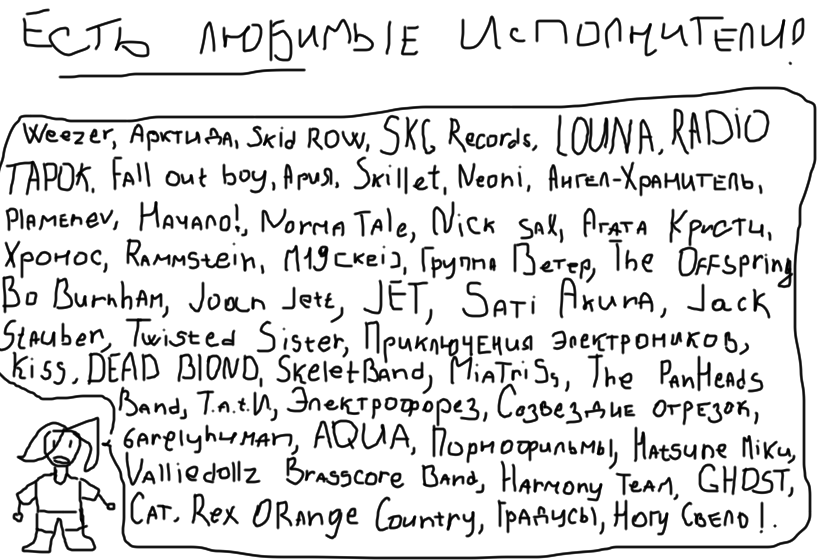 Есть любимые исполнители?
Weezer, Арктида, Skid ROW, SKG Records, LOUNA, RADIO
TAPOK, Fall out boy, Ария, Skillet, Neoni, Ангел-Хранитель,
Plamenev, Начало!, Norma Tale, Nick Sax, Агата Кристи,
Хронос, Rammstein, Группа Ветер, The Offspring
Bo Burnham, Joan Jett, JET, Sati Akura, Jack
Stauber, Twisted Sister, Приключения Электроников,
Kiss, DEAD BLOND, SkeletBand, MiatriSs, The PanHeads
Band, T.a.t.u, Электрофорез, Созвездие отрезок,
6arelyhuman, AQUA, Порнофильмы, Hatsune Miku,
Valliedollz Brasscore Band, Harmony Team, GHOST,
Cat. Rex Orange Country, Градусы, Ногу Свело!.